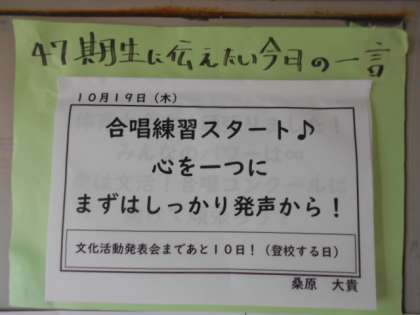 47期生に伝えたい今日の一言
10月19日(木)
合唱練習スタート♪
心を一つに
まずはしっかり発声から！
文化活動発表会まであと10日！(登校する日)
桑原　大貴